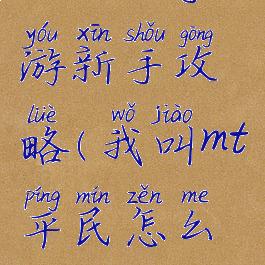 yóu xīn shǒu gōng
游新手攻
lüè wǒ jiào
略(我叫mt
píng mín zěn me
平民怎么